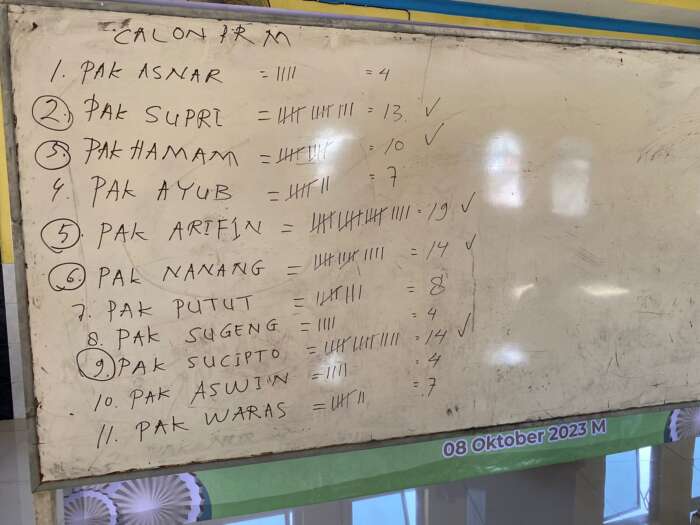 CALON PRM
1. PAK ASNAR = |||| = 4
2. PAK SUPRI = |||| |||| ||| = 13 ✓
3. PAK HAMAM = |||| |||| = 10 ✓
4. PAK AYUB = |||| || = 7
5. PAK ARIFIN = |||| |||| |||| |||| = 19 ✓
6. PAK NANANG = |||| |||| |||| = 14 ✓
7. PAK PUTUT = |||| ||| = 8
8. PAK SUGENG = |||| = 4
9. PAK SUCIPTO = |||| |||| |||| = 14 ✓
10. PAK ASWIN = |||| = 4
11. PAK WARAS = |||| || = 7
08 Oktober 2023 M